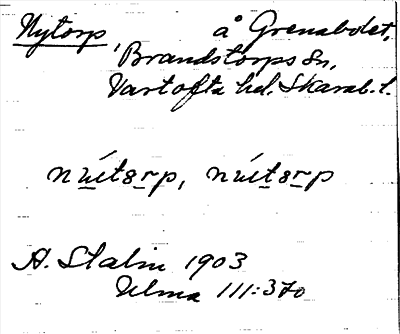 Nytorp, å Grenabolet,
Brandstorps Sn,
Vartofta hd. Skarab. l.
núìtsrp, núìtsrp
A. Stalin 1903
Ulma 111:370